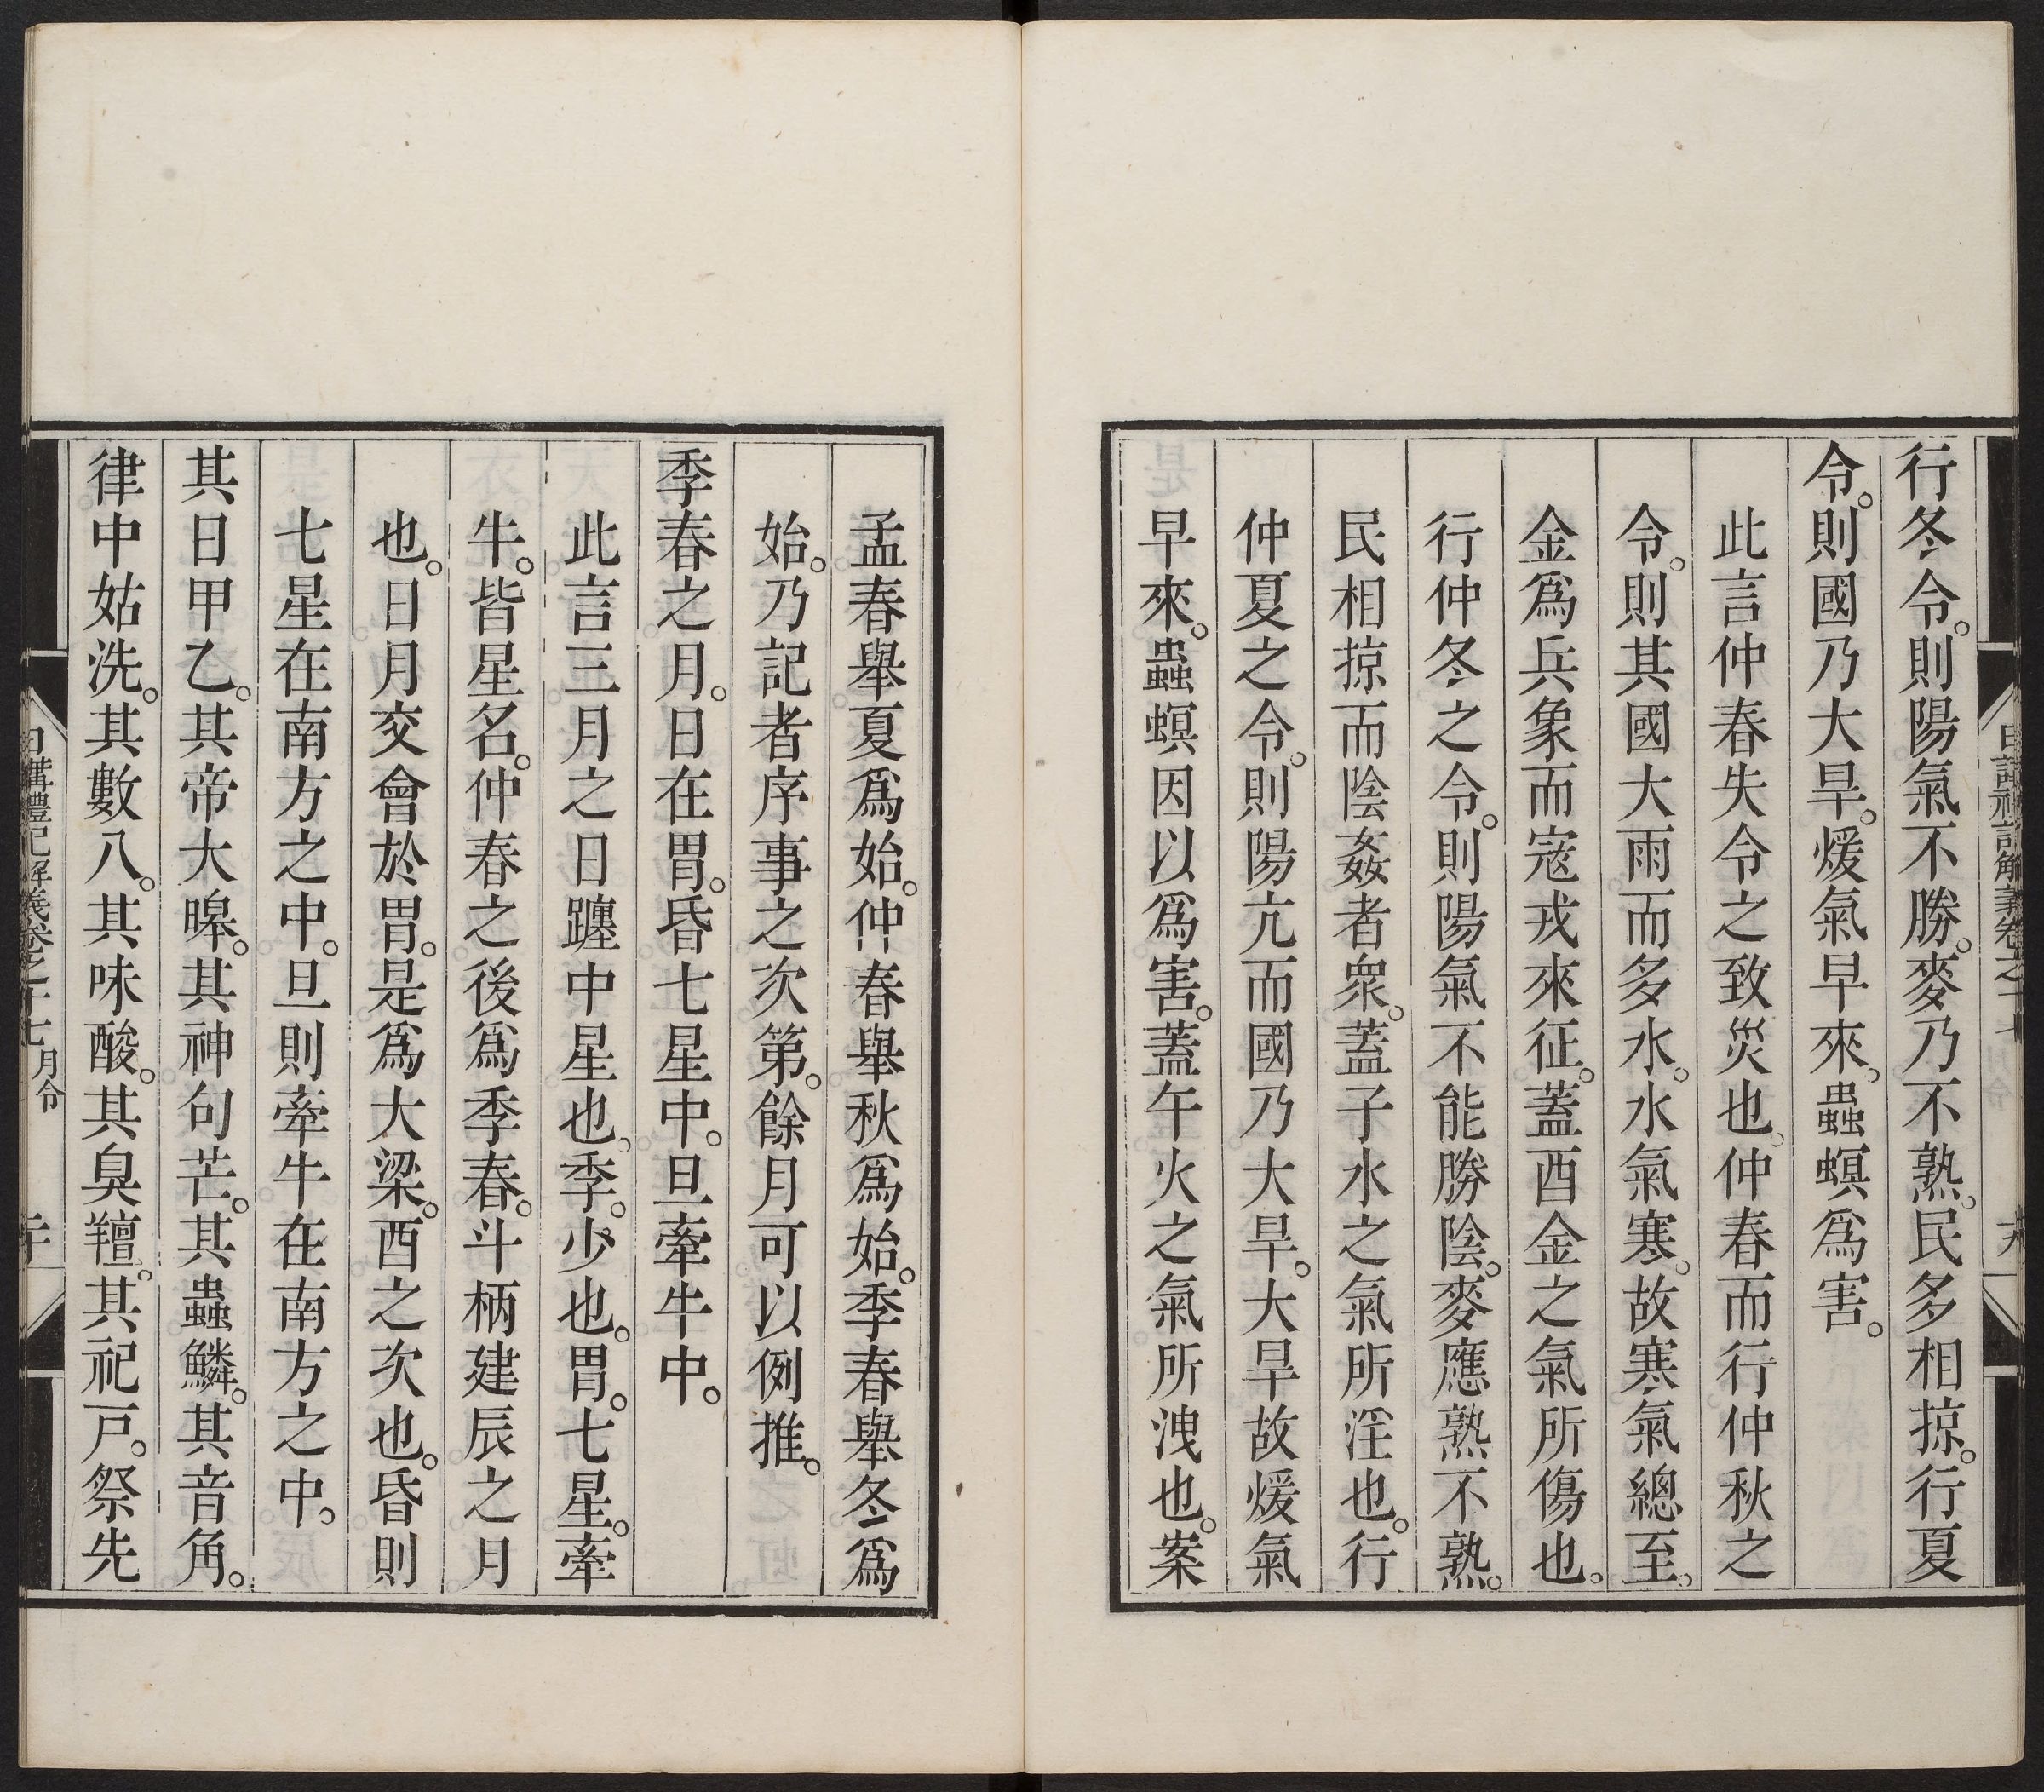 行冬令。則陽氣不勝。麥乃不熟。民多相掠。行夏
令。則國乃大旱。煖氣早來。蟲螟爲害。
此言仲春失令之致災也。仲春而行仲秋之
令。則其國大雨而多水。水氣寒。故寒氣總至。
金爲兵象而寇戎來征。蓋酉金之氣所傷也。
行仲冬之令。則陽氣不能勝陰。麥應熟不熟。
民相掠而陰姦者衆。蓋子水之氣所淫也。行
仲夏之令。則陽亢而國乃大旱。大旱故煖氣
早來。蟲螟因以爲害。蓋午火之氣所洩也。案
孟春舉夏爲始。仲春舉秋爲始。季春舉冬爲
始。乃記者序事之次第。餘月可以例推。
季春之月。日在胃。昏七星中。旦牽牛中。
此言三月之日躔中星也。季。少也。胃。七星。牽
牛。皆星名。仲春之後爲季春。斗柄建辰之月
也。日月交會於胃。是爲大梁。酉之次也。昏則
七星在南方之中。旦則牽牛在南方之中。
其日甲乙。其帝大皞。其神句芒。其蟲鱗。其音角。
律中姑洗。其數八。其味酸。其臭羶。其祀戸。祭先
日講禮記解義卷之十七 月令